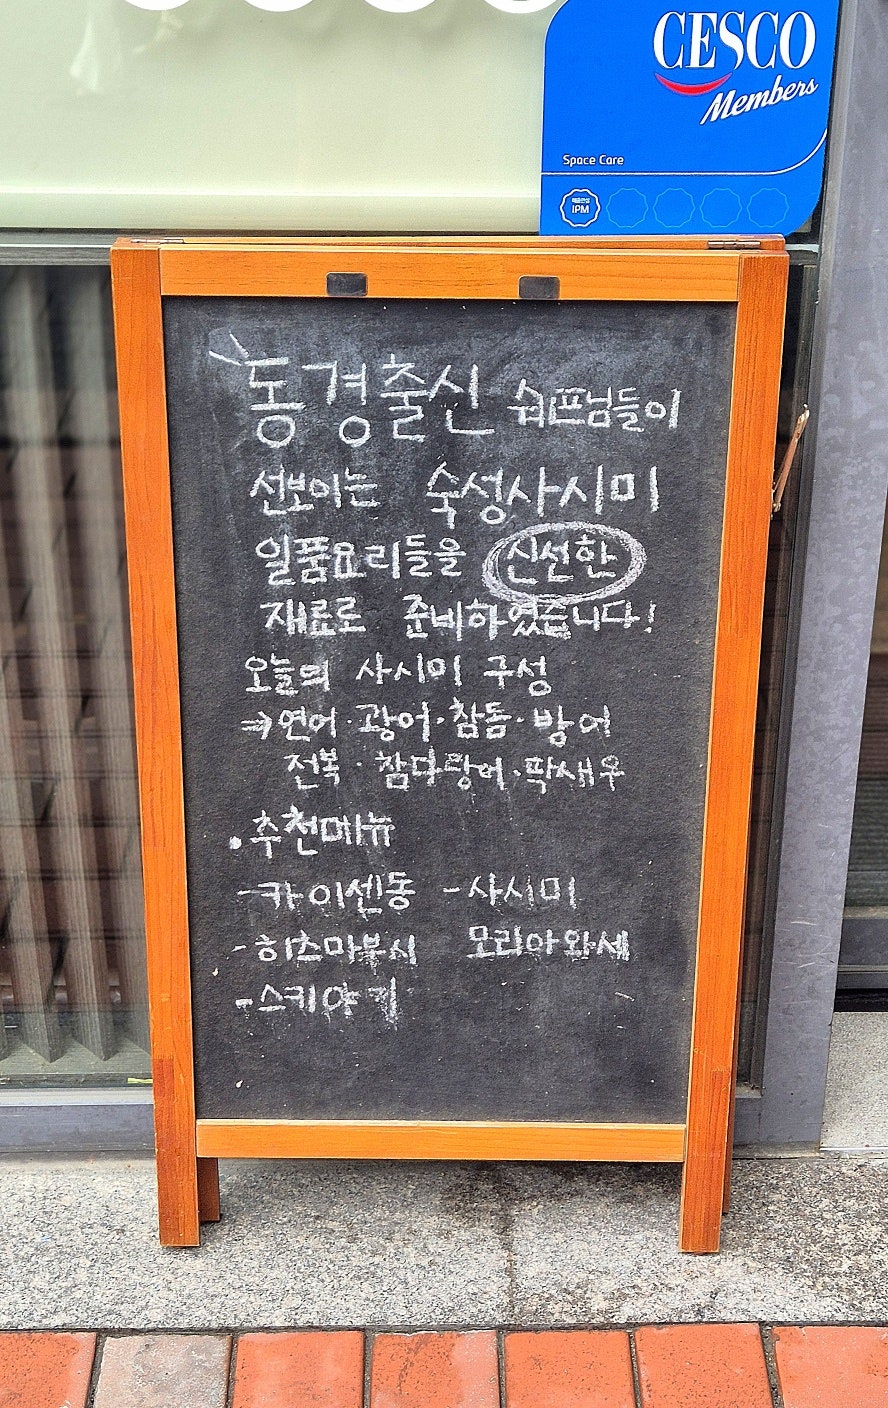 CESCO
Members
Space Care
해충방제
IPM
동경출신 쉐프님들이
선보이는 숙성사시미
일품요리들을 신선한
재료로 준비하였습니다!
오늘의 사시미 구성
⇒연어·광어·참돔·방어
전복·참다랑어·딱새우
•추천메뉴
-카이센동 -사시미
-히츠마부시 모리아와세
-스키야키